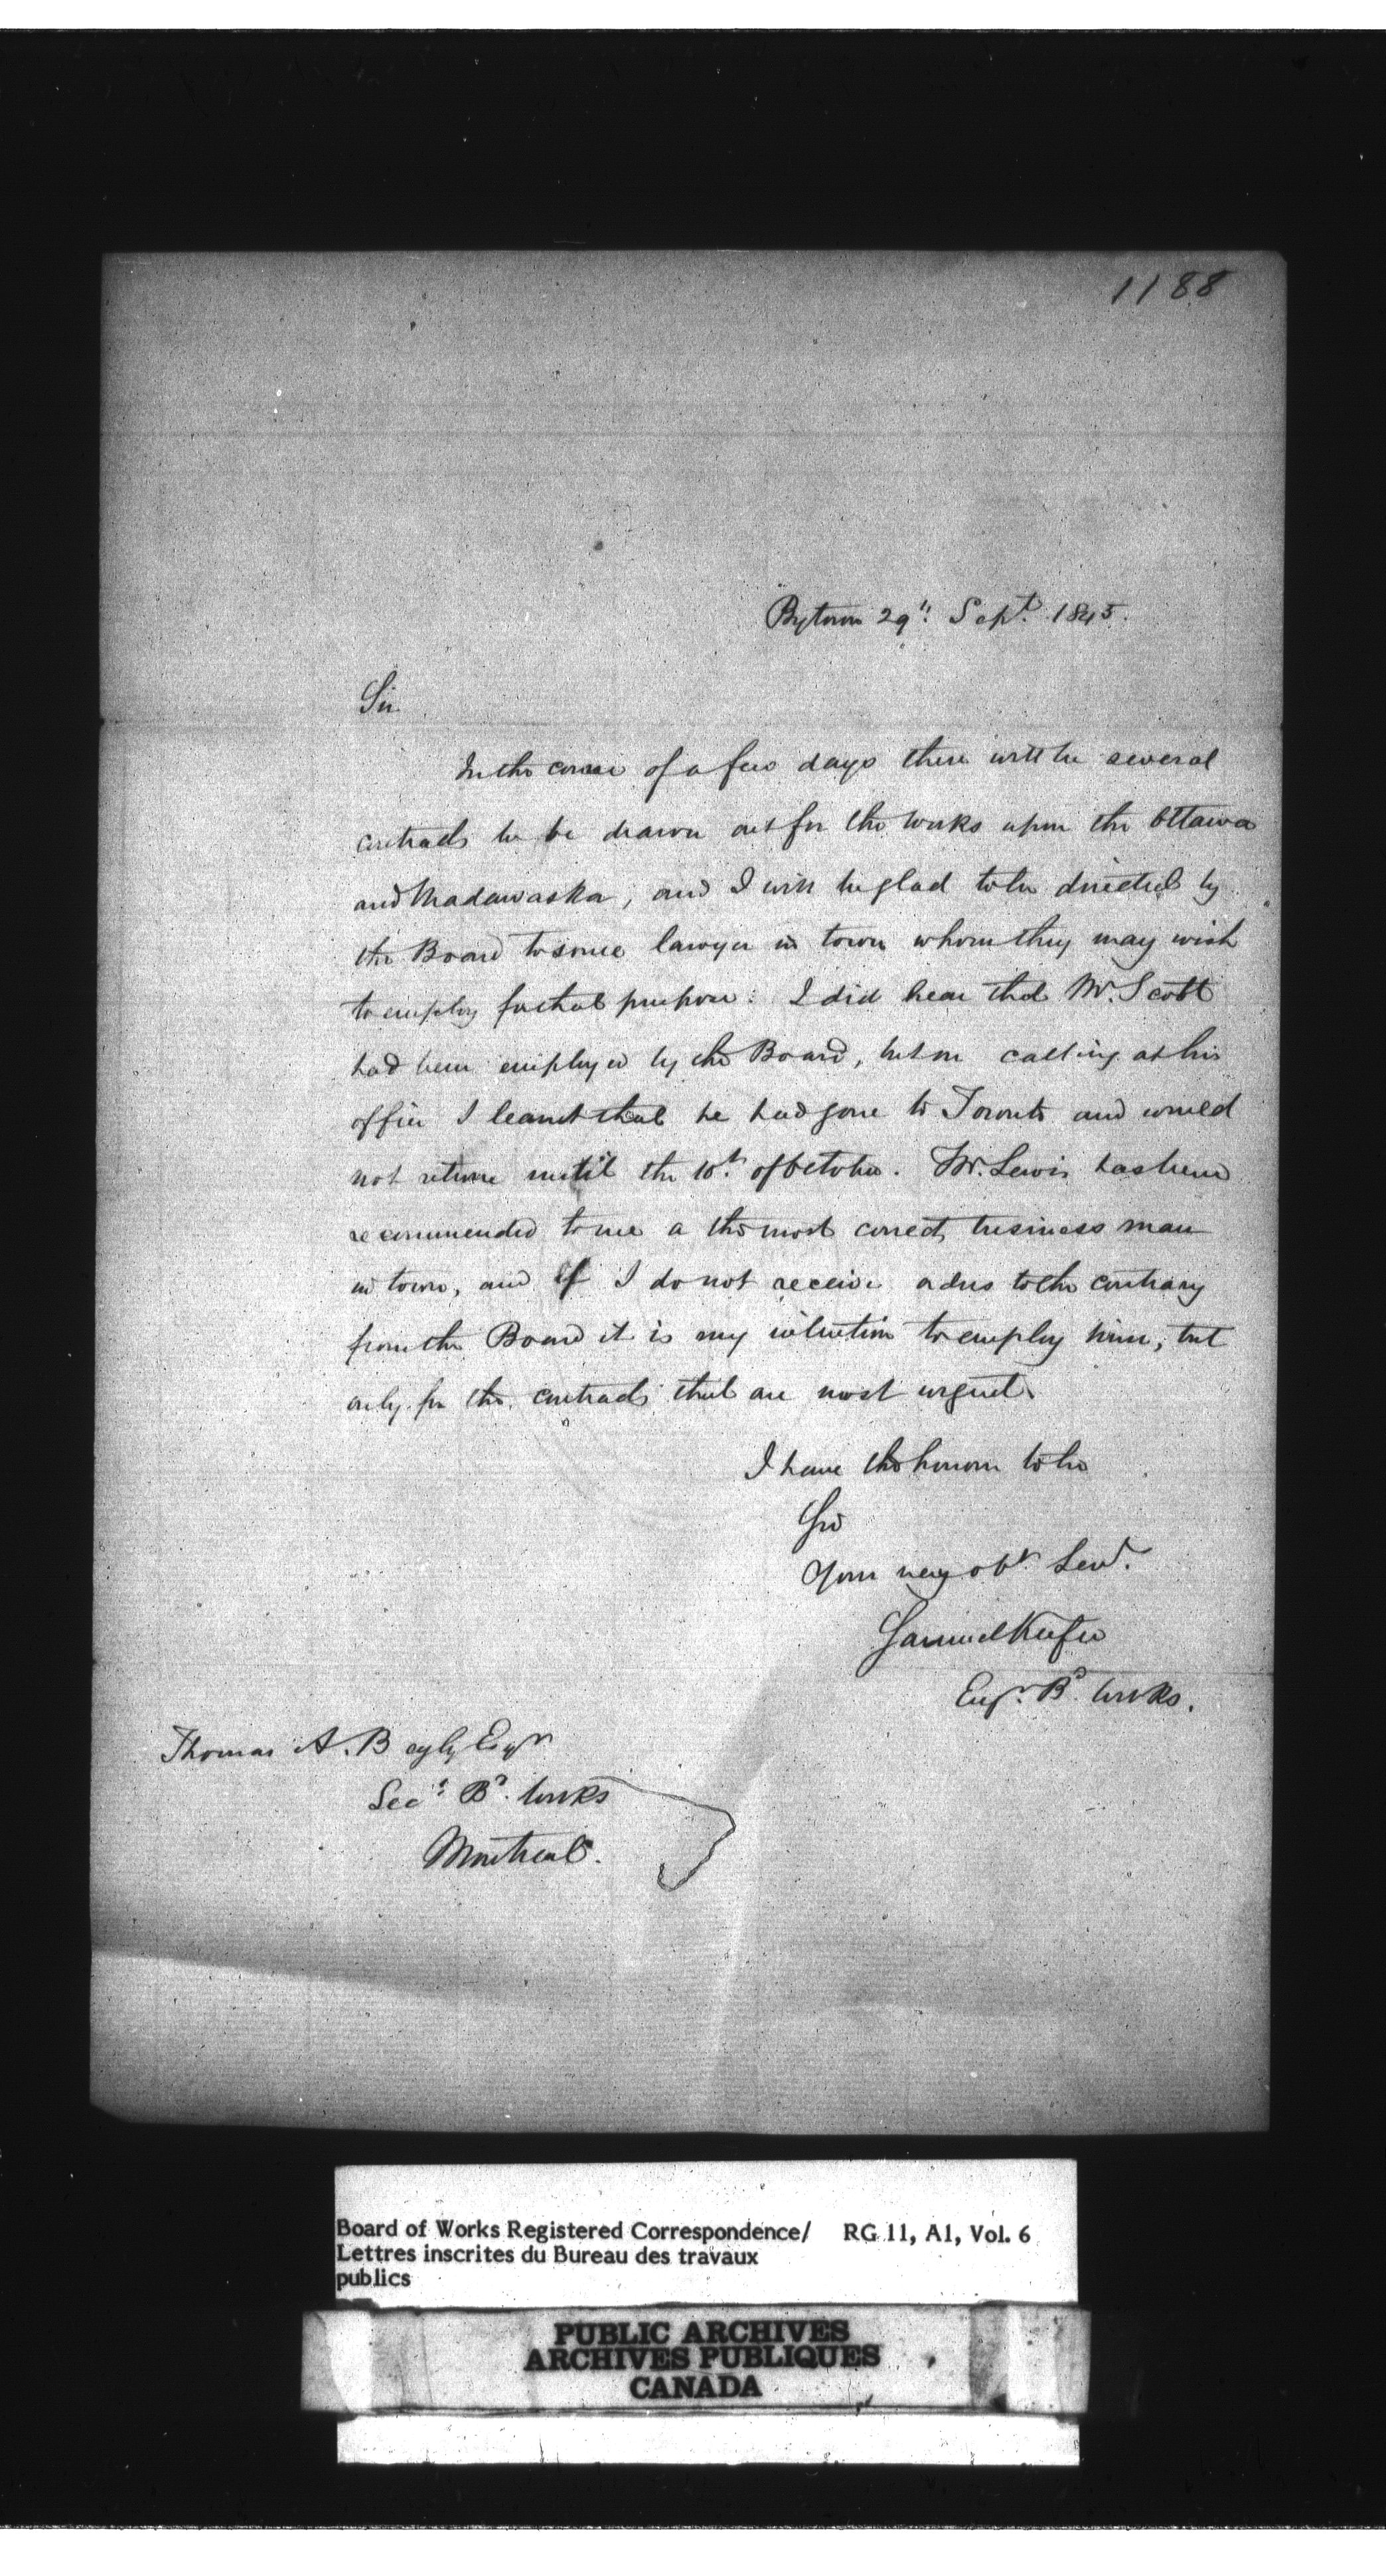 1188
Bytown 29" Sept. 1845.
Sir
In the course of a few days there will be several
contracts to be drawn out for the works upon the Ottawa
and Madawaska, and I will be glad to be directed by
the Board to some lawyer in town whom they may wish
to employ for that purpose. I did hear that Mr. Scott
had been employed by the Board, but on calling at his
office I learnt that he had gone to Toronto and would
not return until the 10th of October. Mr. Lewis has been
recommended to me a the most correct business man
in town, and if I do not receive orders to the contrary
from the Board it is my intention to employ him, but
only for the contracts that are most urgent.
I have the honor to be
Sir
Your very obt. Servt.
Samuel Keefer
Engr. Bd. Works.
Thomas A. Begly Esqr
Secy. Bd. Works
Montreal.
Board of Works Registered Correspondence/ RG 11, A1, Vol. 6
Lettres inscrites du Bureau des travaux
publics
PUBLIC ARCHIVES
ARCHIVES PUBLIQUES
CANADA